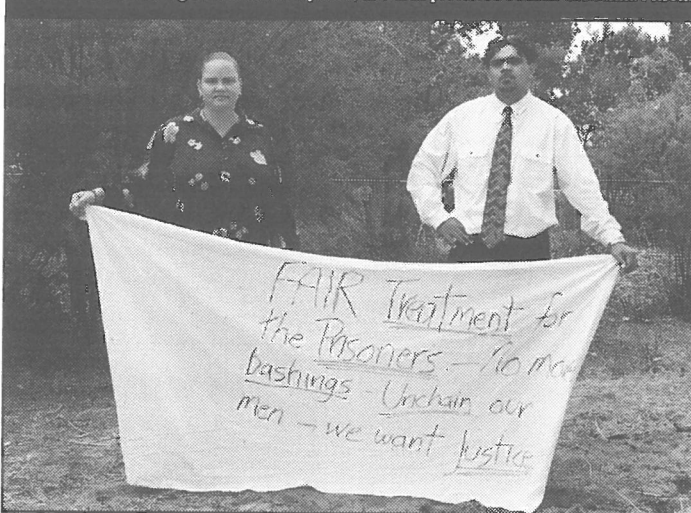 FAIR Treatment for
the Prisoners - No more
bashings - Unchain our
men - we want Justice